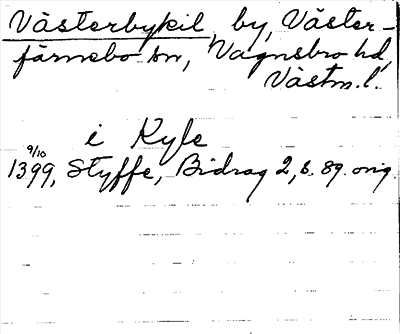 Västerbykil, by, Väster-
färnebo sn, Vagnsbro hd,
Västm. l.
i Kyle
9/10
1399, Styffe, Bidrag 2, s. 89. orig.